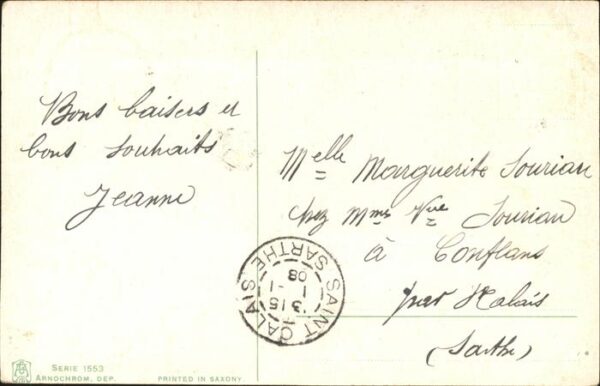 Bons baisers et
bons souhaits
Jeanne
Melle Marguerite Sourian
chez Mme Vve Sourian
à Conflans
par St Calais
(Sarthe)
SAINT CALAIS
SARTHE
315
1 -1
08
SERIE 1553
ARNOCHROM. DEP.
PRINTED IN SAXONY